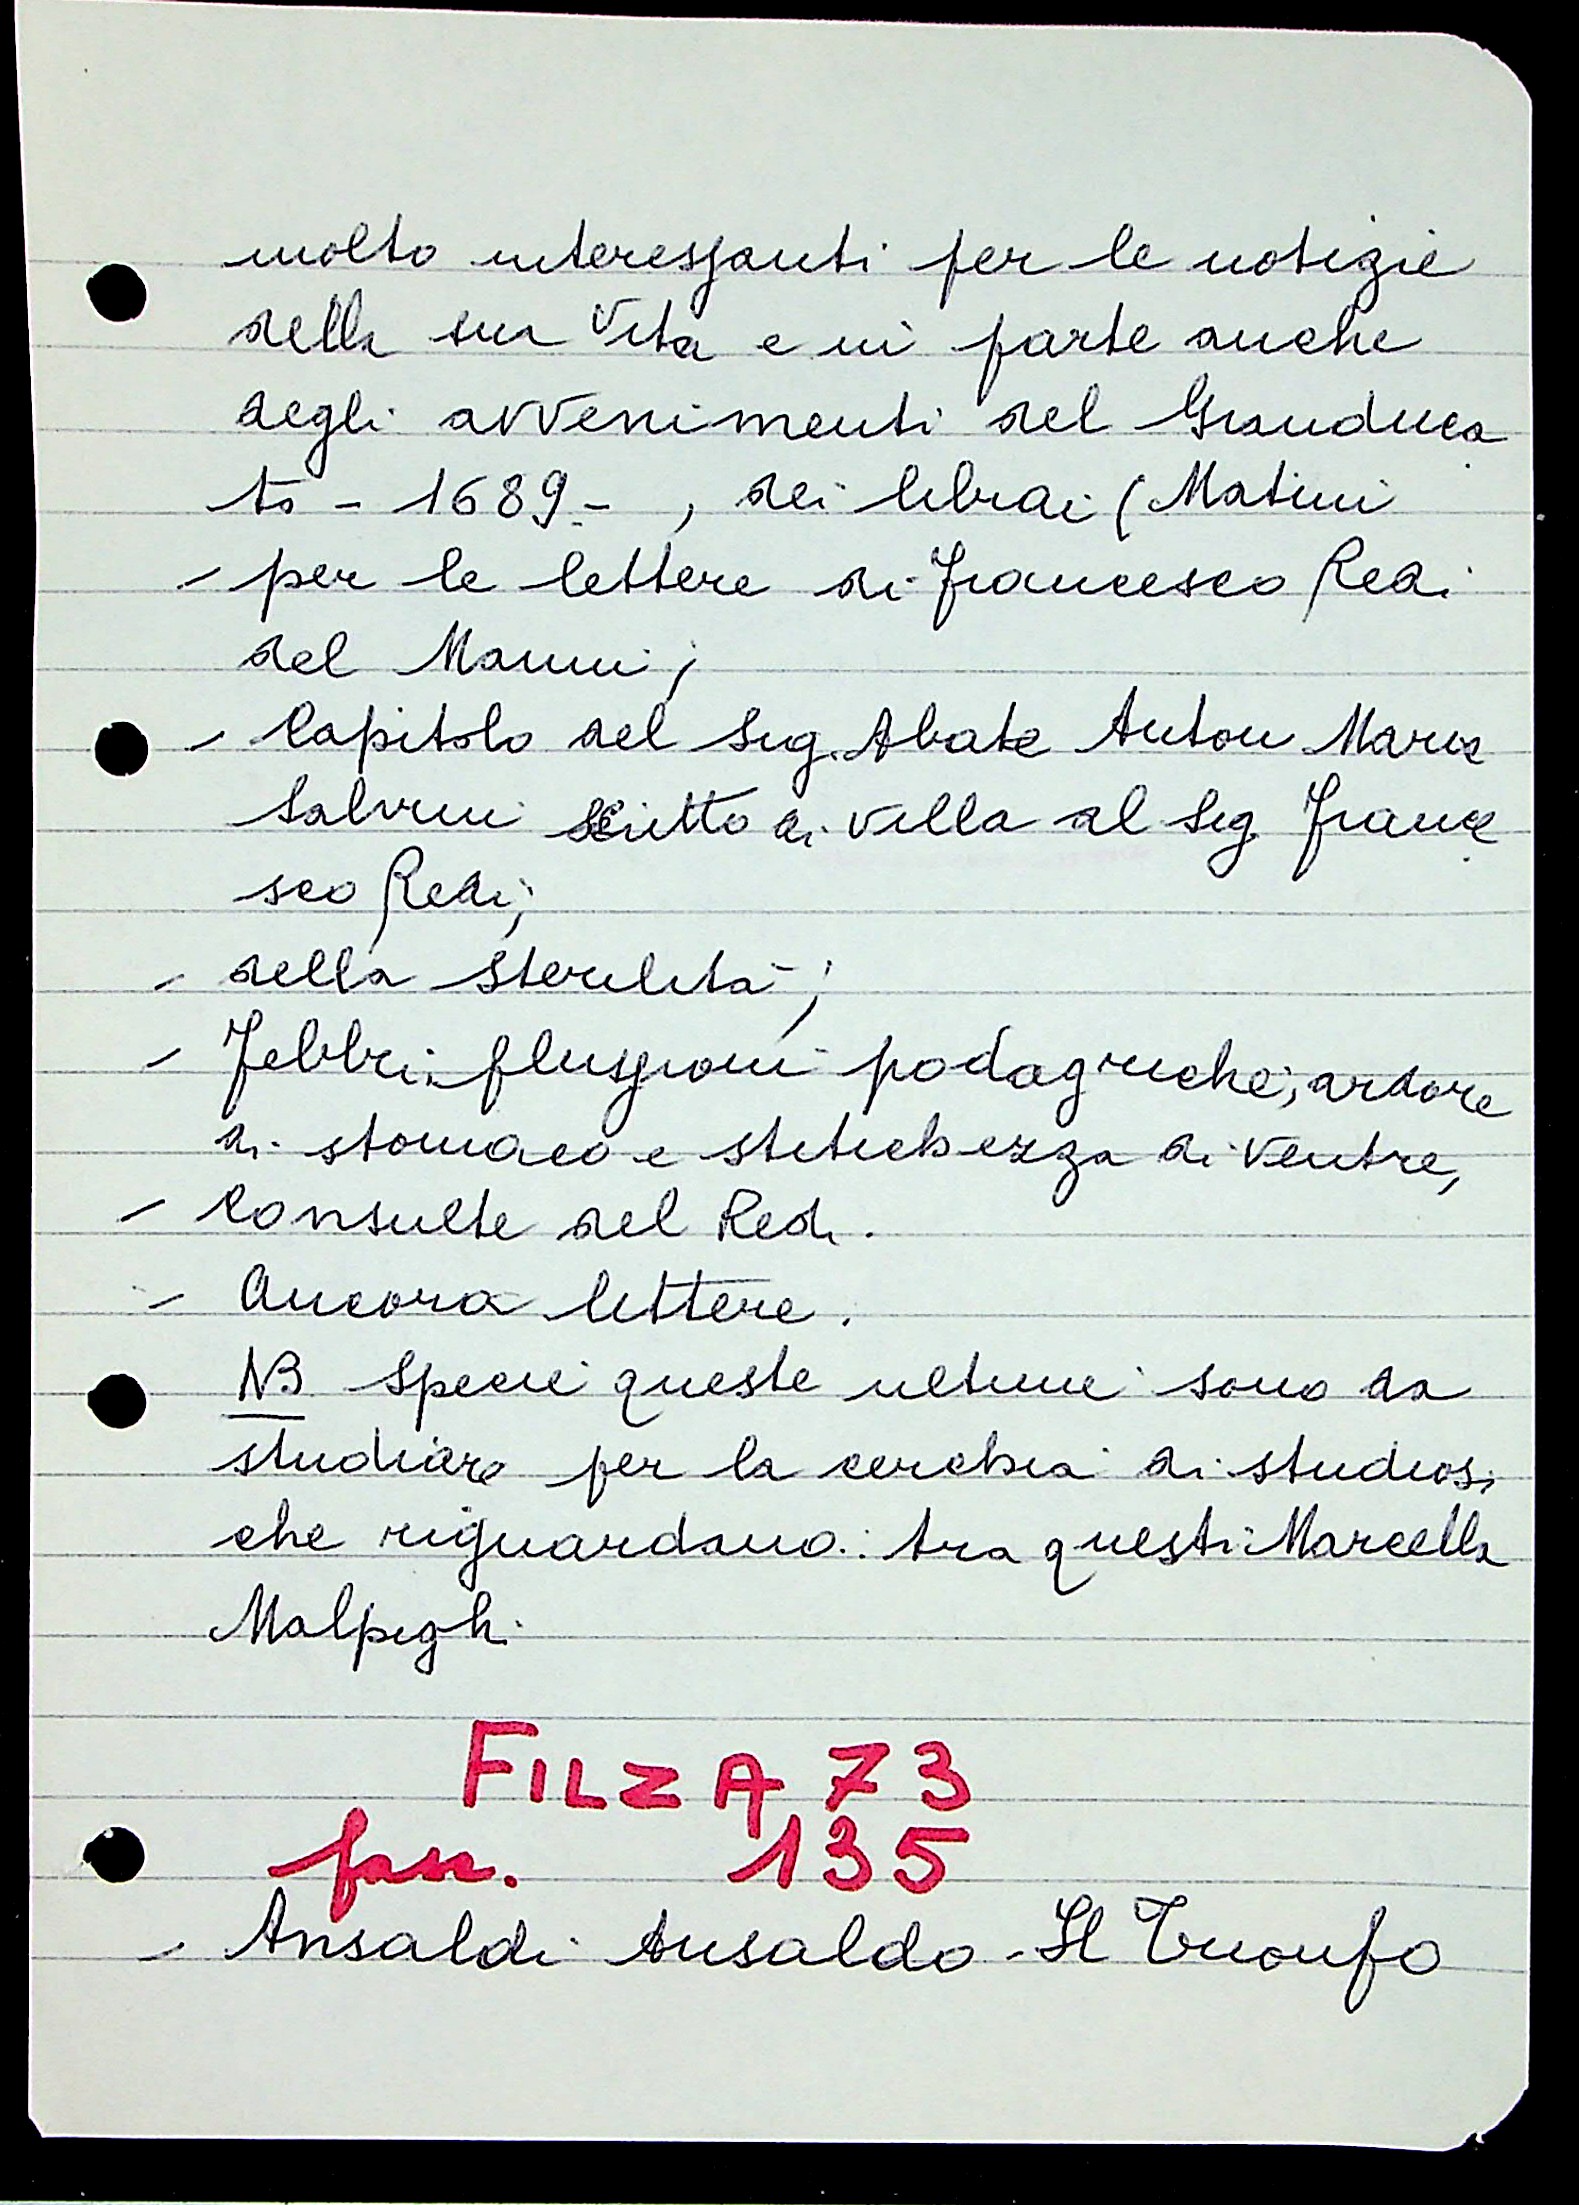 molto interessanti per le notizie
della sua vita e in parte anche
degli avvenimenti del Granduca
to - 1689 - , dei librai (Matini
- per le lettere di Francesco Redi
del Manni;
- Capitolo del Sig. Abate Anton Maria
Salvini scritto di villa al Sig. France
sco Redi;
- della sterilità;
- Febbri, flussioni podagriche; ardore
di stomaco e stitichezza di ventre,
- Consulte del Redi.
- Ancora lettere.
NB Specie queste ultime sono da
studiare per la cerchia di studiosi
che riguardano: tra questi Marcello
Malpighi
FILZA 73
fasc. 135
- Ansaldi Ansaldo - Il Trionfo